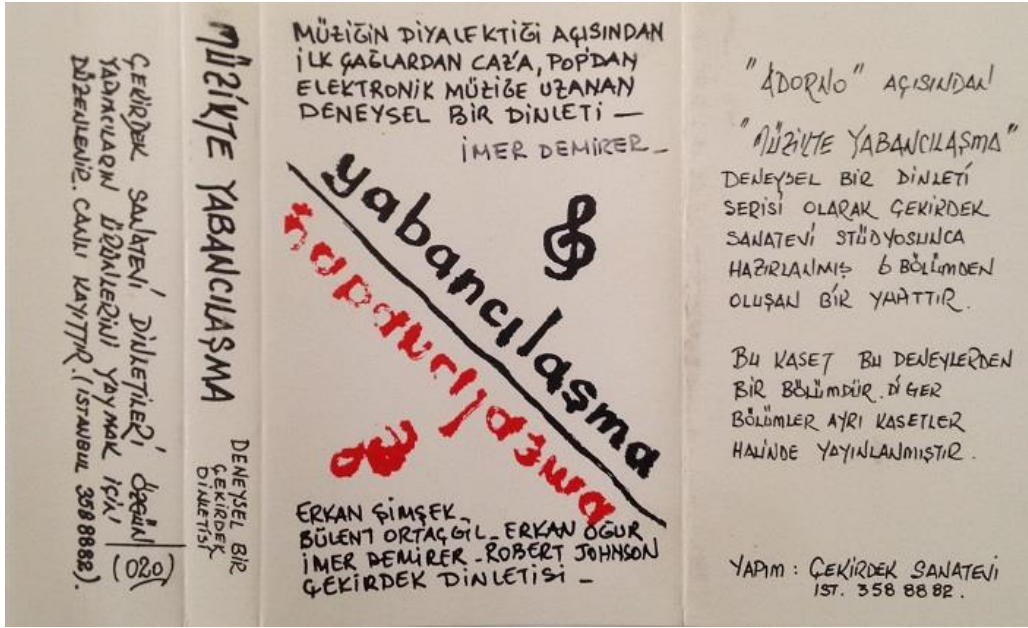 ÇEKİRDEK SANATEVİ DİNLETİLERİ ÖZGÜN
YADIMCILARIN ÜRÜNLERİNİ YAYMAK İÇİN
DÜZENLENİR. CANLI KAYITTIR. (İSTANBUL 358 8882).
(020)
MÜZİKTE YABANCILAŞMA
DENEYSEL BİR
ÇEKİRDEK
DİNLETİSİ
MÜZİĞİN DİYALEKTİĞİ AÇISINDAN
İLK ÇAĞLARDAN CAZ'A, POP'DAN
ELEKTRONİK MÜZİĞE UZANAN
DENEYSEL BİR DİNLETİ —
İMER DEMİRER _
yabancılaşma
yabancılaşma
ERKAN ŞİMŞEK _
BÜLENT ORTAÇGİL _ ERKAN OĞUR
İMER DEMİRER - ROBERT JOHNSON
ÇEKİRDEK DİNLETİSİ —
"ADORNO" AÇISINDAN
"MÜZİKTE YABANCILAŞMA"
DENEYSEL BİR DİNLETİ
SERİSİ OLARAK ÇEKİRDEK
SANATEVİ STÜDYOSUNCA
HAZIRLANMIŞ 6 BÖLÜMDEN
OLUŞAN BİR YAPITTIR.
BU KASET BU DENEYLERDEN
BİR BÖLÜMDÜR. DİĞER
BÖLÜMLER AYRI KASETLER
HALİNDE YAYINLANMIŞTIR.
YAPIM : ÇEKİRDEK SANATEVİ
İST. 358 88 82.